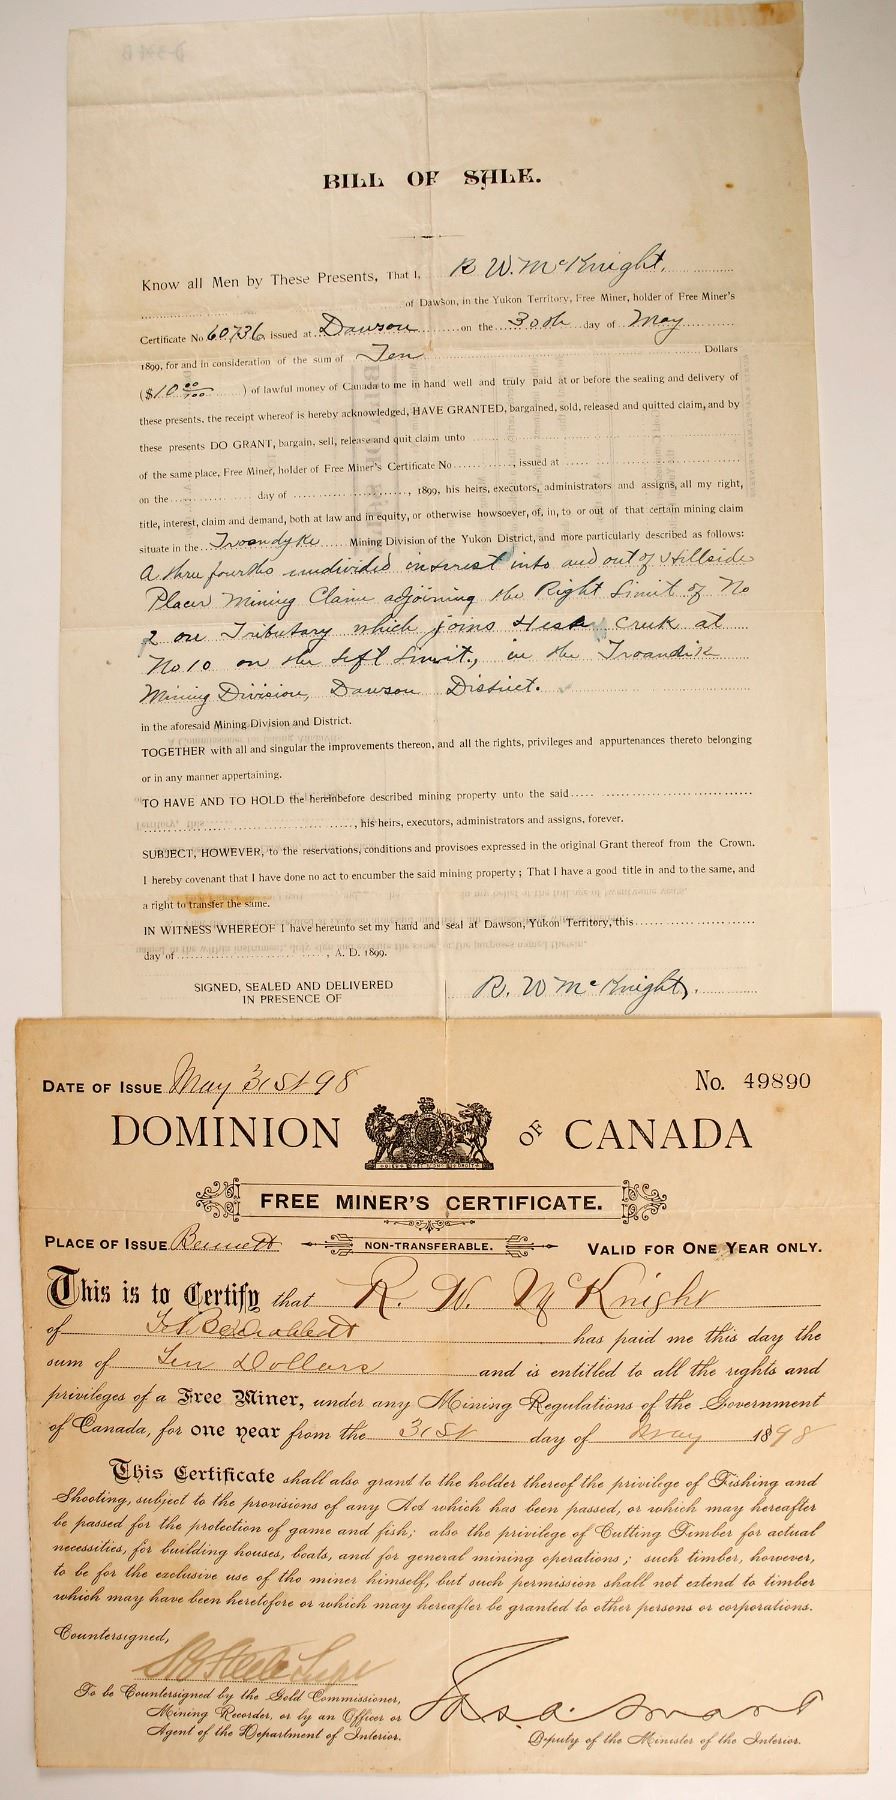 BILL OF SALE.
Know all Men by These Presents, That I, R. W. McKnight,
of Dawson, in the Yukon Territory, Free Miner, holder of Free Miner's
Certificate No 60736, issued at Dawson on the 30th day of May
1899, for and in consideration of the sum of Ten Dollars
($10 00/100 ) of lawful money of Canada to me in hand well and truly paid at or before the sealing and delivery of
these presents, the receipt whereof is hereby acknowledged, HAVE GRANTED, bargained, sold, released and quitted claim, and by
these presents DO GRANT, bargain, sell, release and quit claim unto
of the same place, Free Miner, holder of Free Miner's Certificate No , issued at
on the day of , 1899, his heirs, executors, administrators and assigns, all my right,
title, interest, claim and demand, both at law and in equity, or otherwise howsoever, of, in, to or out of that certain mining claim
situate in the Troandyke Mining Division of the Yukon District, and more particularly described as follows:
A three fourths undivided interest into and out of Hillside
Placer Mining Claim adjoining the Right Limit of No
2 on Tributary which joins Creek at
No 10 on the left Limit, in the Troandik
Mining Division, Dawson District.
in the aforesaid Mining Division and District.
TOGETHER with all and singular the improvements thereon, and all the rights, privileges and appurtenances thereto belonging
or in any manner appertaining.
TO HAVE AND TO HOLD the hereinbefore described mining property unto the said
, his heirs, executors, administrators and assigns, forever.
SUBJECT, HOWEVER, to the reservations, conditions and provisoes expressed in the original Grant thereof from the Crown.
I hereby covenant that I have done no act to encumber the said mining property; That I have a good title in and to the same, and
a right to transfer the same.
IN WITNESS WHEREOF I have hereunto set my hand and seal at Dawson, Yukon Territory, this
day of , A. D. 1899.
SIGNED, SEALED AND DELIVERED
IN PRESENCE OF
R. W McKnight,
DATE OF ISSUE May 31st 98 No. 49890
DOMINION OF CANADA
FREE MINER'S CERTIFICATE.
PLACE OF ISSUE Bennett NON-TRANSFERABLE. VALID FOR ONE YEAR ONLY.
This is to Certify that R. W. McKnight
of has paid me this day the
sum of Ten Dollars and is entitled to all the rights and
privileges of a Free Miner, under any Mining Regulations of the Government
of Canada, for one year from the 31st day of May 1898
This Certificate shall also grant to the holder thereof the privilege of Fishing and
Shooting, subject to the provisions of any Act which has been passed, or which may hereafter
be passed for the protection of game and fish; also the privilege of Cutting Timber for actual
necessities, for building houses, boats, and for general mining operations; such timber, however,
to be for the exclusive use of the miner himself, but such permission shall not extend to timber
which may have been heretofore or which may hereafter be granted to other persons or corporations.
Countersigned,
S B Steele Supt
To be Countersigned by the Gold Commissioner,
Mining Recorder, or by an Officer or
Agent of the Department of Interior.
Jas. A. Smart
Deputy of the Minister of the Interior.